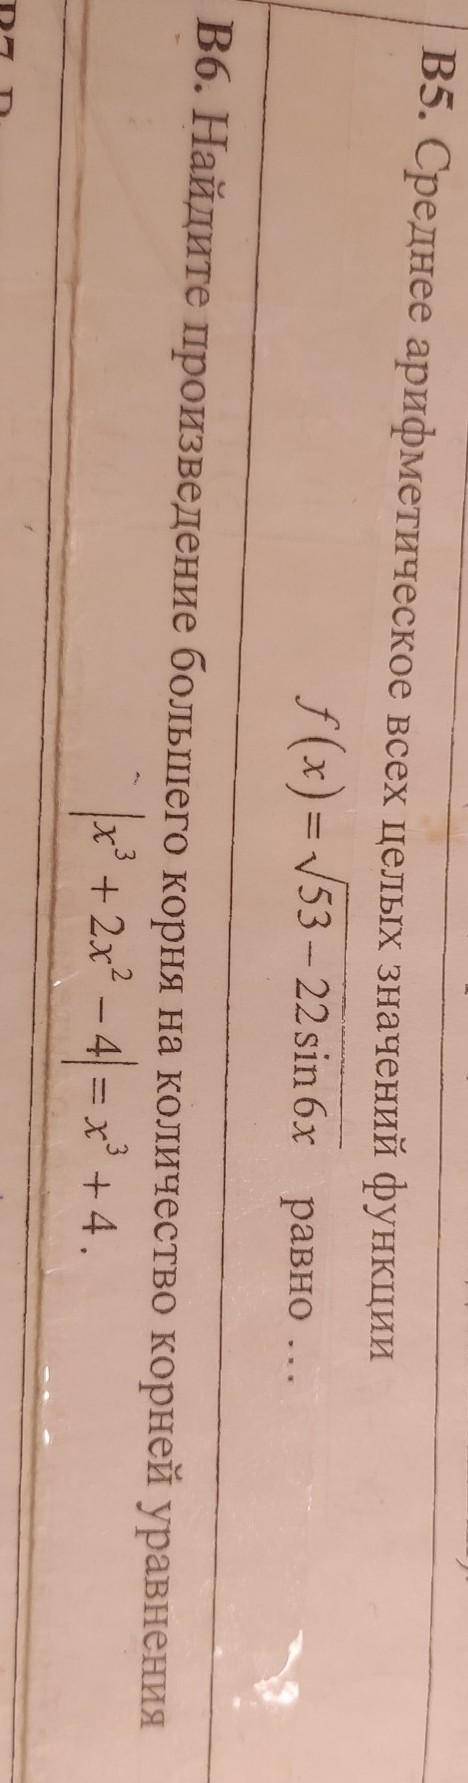 B5. Среднее арифметическое всех целых значений функции
f(x) = √53 − 22 sin 6x равно ...
B6. Найдите произведение большего корня на количество корней уравнения
|x³ + 2x² − 4| = x³ + 4.